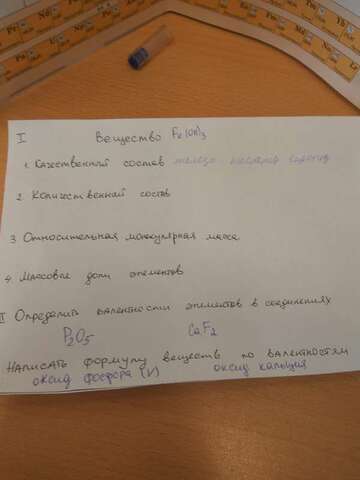 I Вещество Fe(OH)3
1. Качественный состав железо кислород водород
2. Количественный состав
3. Относительная молекулярная масса
4. Массовые доли элементов
II Определить валентности элементов в соединениях
P2O5 CaF2
Написать формулу веществ по валентностям
оксид фосфора (V) оксид кальция